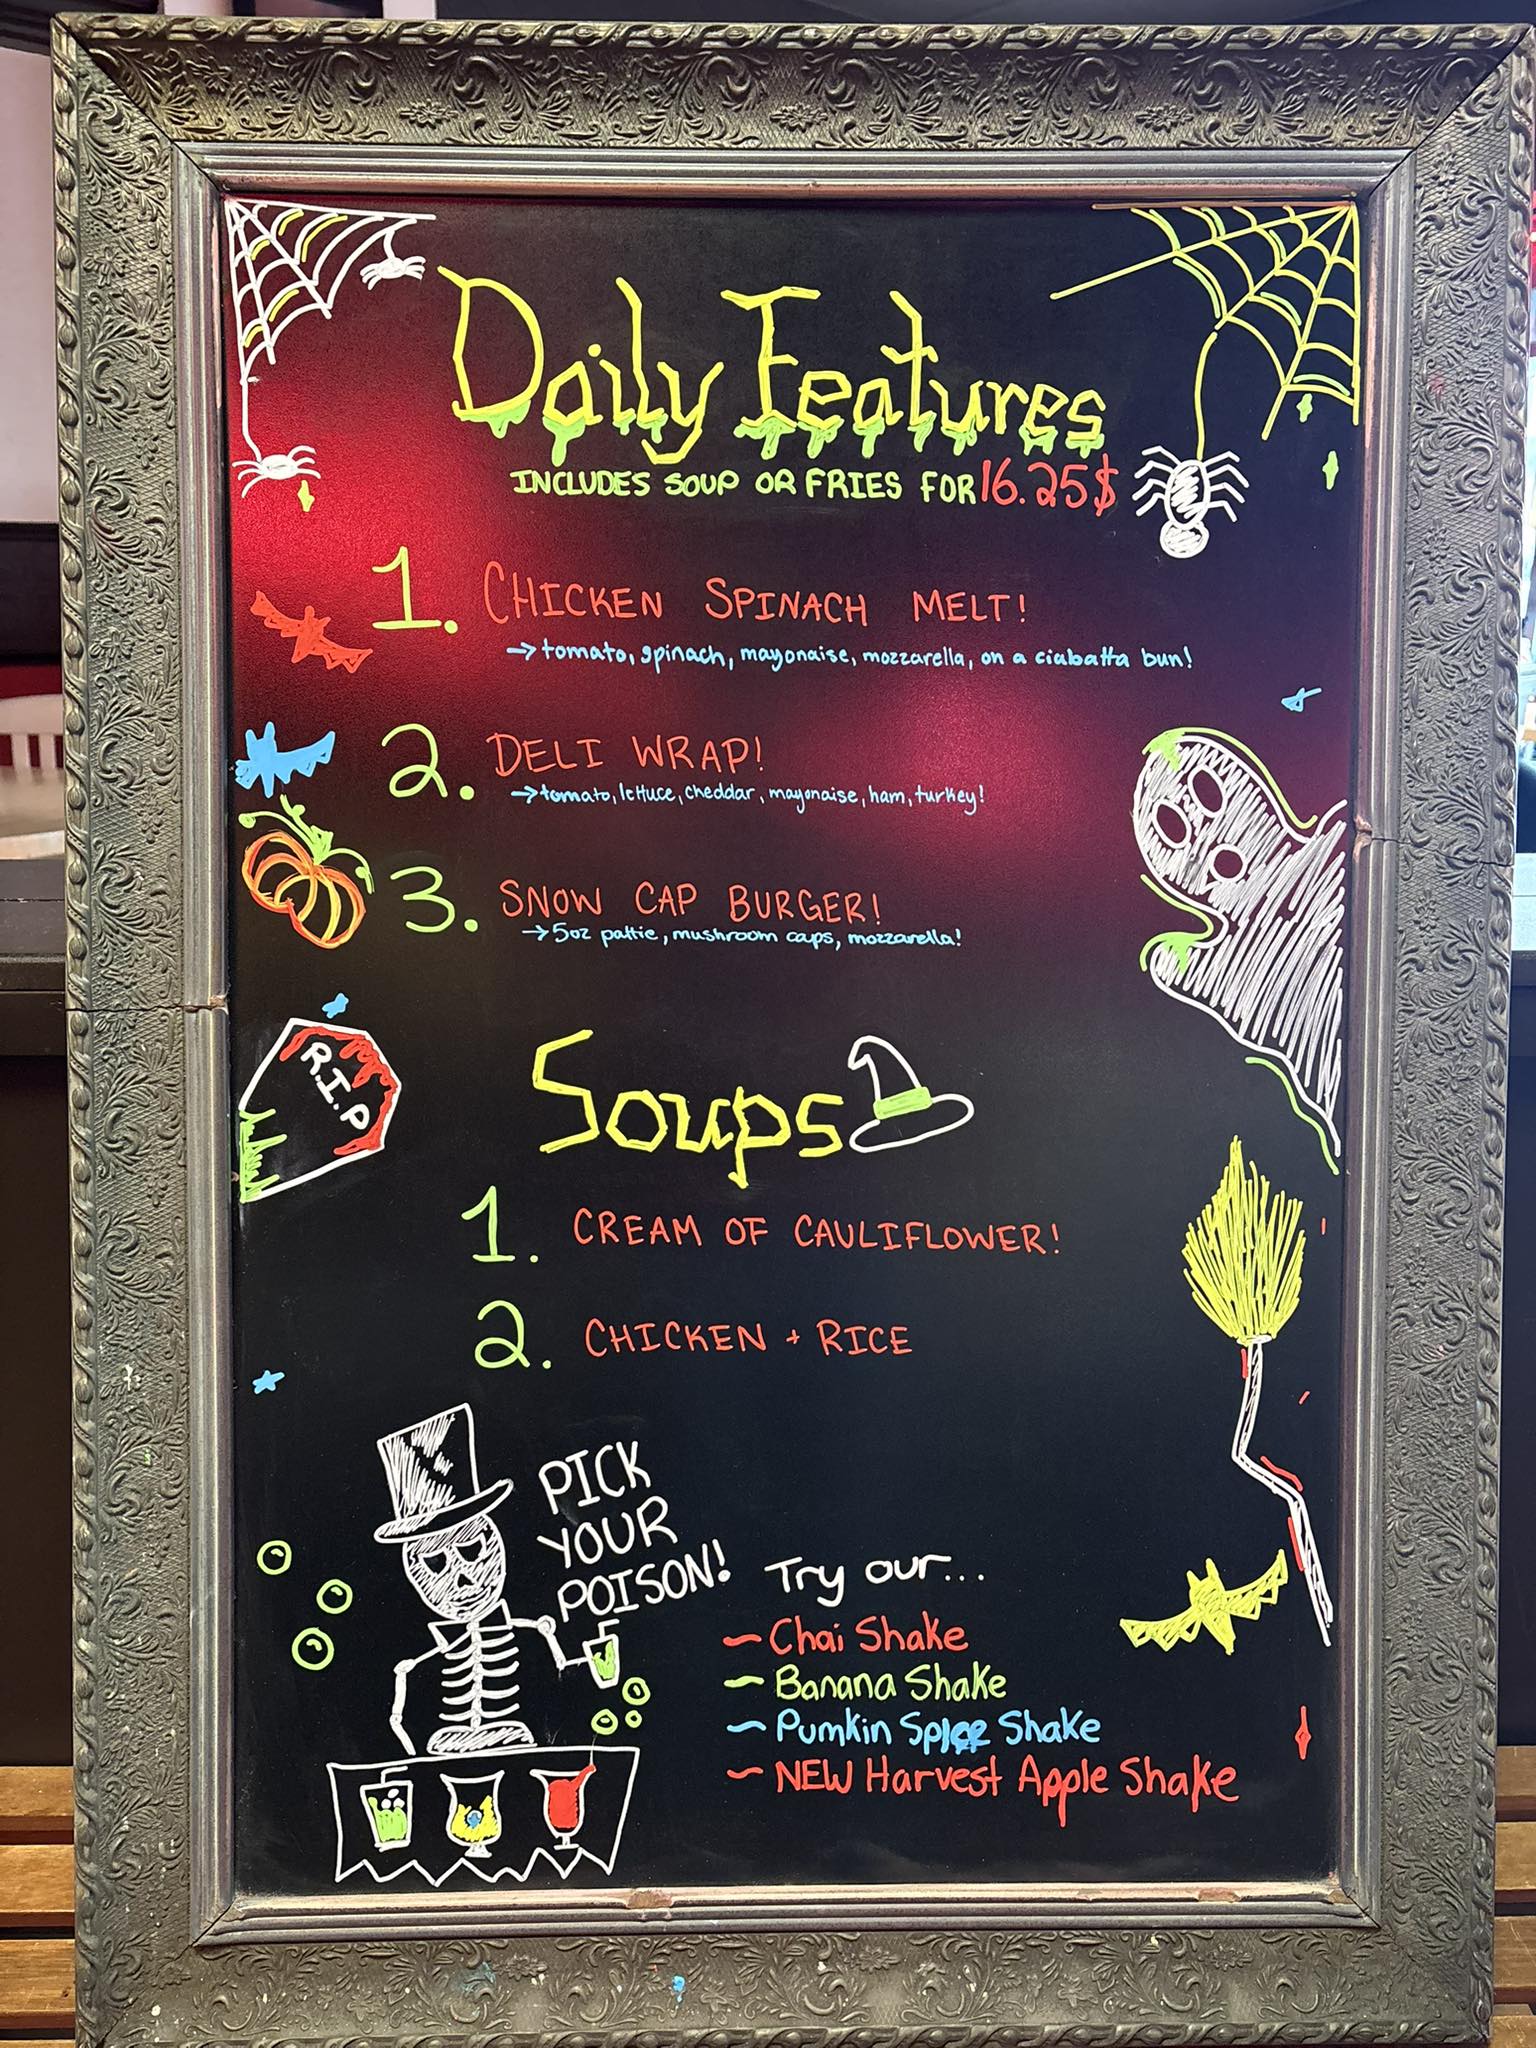 Daily Features
INCLUDES SOUP OR FRIES FOR 16.25$
1. CHICKEN SPINACH MELT!
→ tomato, spinach, mayonaise, mozzarella, on a ciabatta bun!
2. DELI WRAP!
→ tomato, lettuce, cheddar, mayonaise, ham, turkey!
3. SNOW CAP BURGER!
→ 5oz pattie, mushroom caps, mozzarella!
R.I.P
Soups
1. CREAM OF CAULIFLOWER!
2. CHICKEN + RICE
PICK
YOUR
POISON!
Try our...
~ Chai Shake
~ Banana Shake
~ Pumkin Spice Shake
~ NEW Harvest Apple Shake